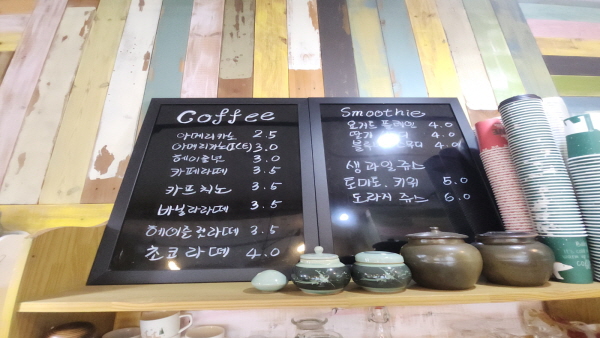 Coffee
아메리카노 2.5
아메리카노(ICE) 3.0
헤이즐넛 3.0
카페라떼 3.5
카푸치노 3.5
바닐라라떼 3.5
헤이즐넛라떼 3.5
초코라떼 4.0
Smoothie
요거트 플레인 4.0
딸기 4.0
4.0
생과일쥬스
토마토, 키위 5.0
도라지 쥬스 6.0